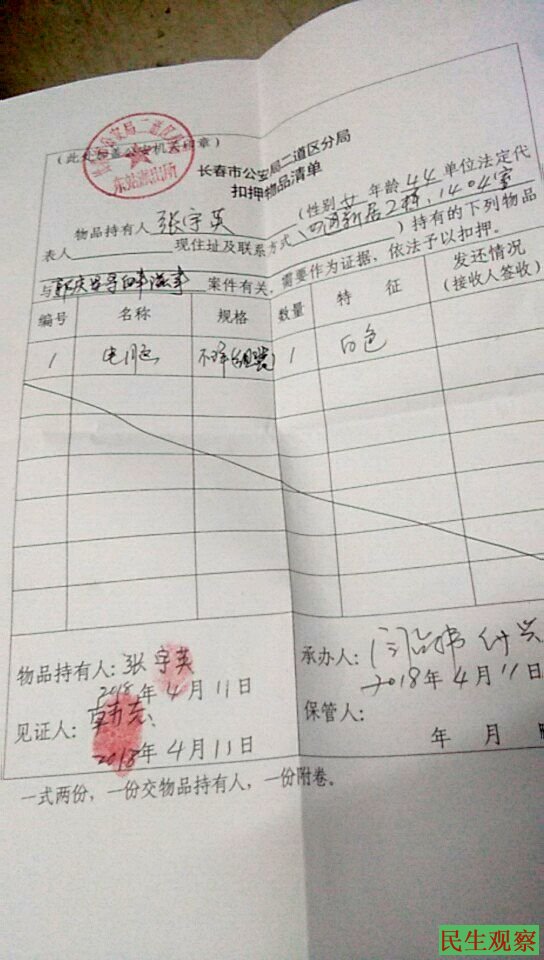 (此处加盖公安机关印章)
东站派出所
长春市公安局二道区分局
扣押物品清单
物品持有人 张宇英 (性别 女 年龄 44 单位法定代
表人 现住址及联系方式 新居2栋,1404室 ) 持有的下列物品
与 寻衅滋事 案件有关,需要作为证据,依法予以扣押。
编号 名称 规格 数量 特征 发还情况
(接收人签收)
1 电脑 1 白色
物品持有人: 张宇英
2018年4月11日
见证人:
2018年4月11日
承办人:
2018年4月11日
保管人:
年 月
一式两份,一份交物品持有人,一份附卷。
民生观察